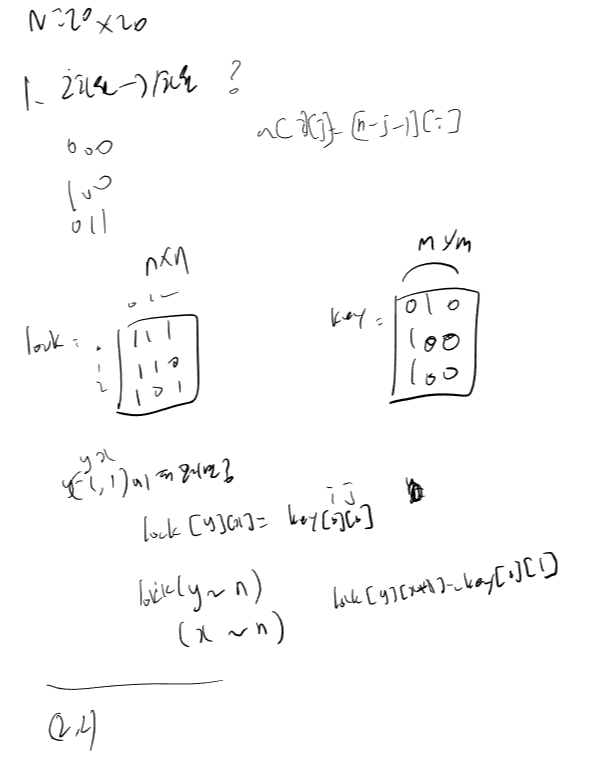 N=20×20
1. 2차원 → 1차원 ?
000
100
011
a[i][j]=[n-j-1][i]
n×n
m×m
0 1 2
lock =
0 1 1 1
1 1 1 0
2 1 0 1
key =
0 1 0
1 0 0
1 0 0
y x
(-1,1)
i j
lock[y][x] = key[0][0]
lock(y~n)
(x~n)
lock[y][x+1]=key[0][1]
(2,2)